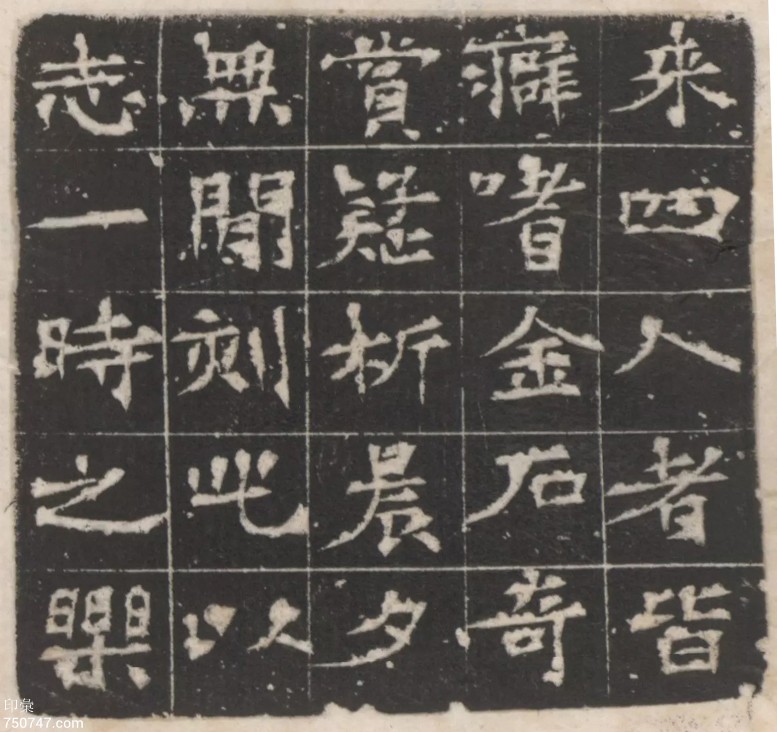 来四人者皆
癖嗜金石奇
賞疑析晨夕
無間刻此以
志一時之樂
印彙
750747.com